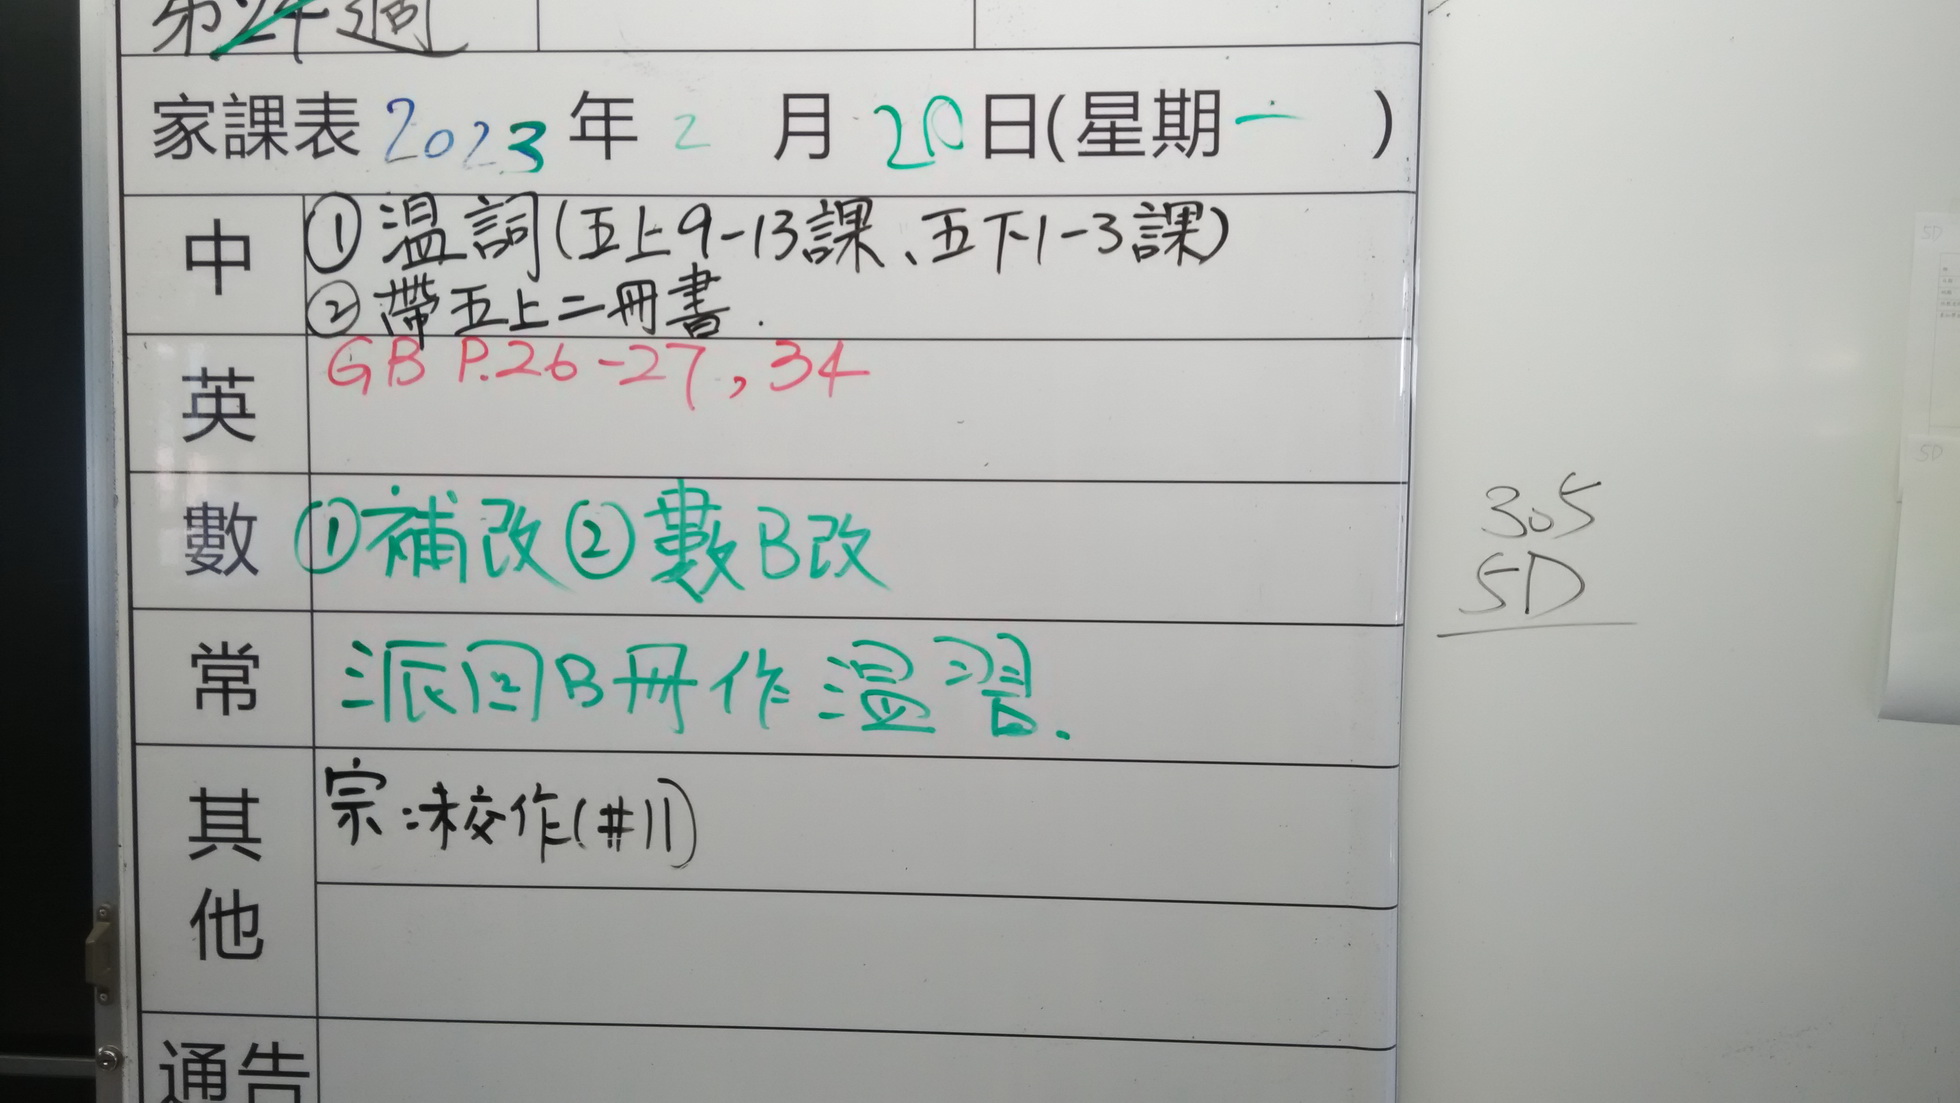 第24週
家課表 2023 年 2 月 20 日(星期一 )
中 ①溫詞(五上9-13課、五下1-3課)
②帶五上二冊書.
英 GB P.26-27, 34
數 ①補改②數B改
常 派回B冊作溫習.
其他 宗:未交作(#11)
通告
305
5D
5D
5D